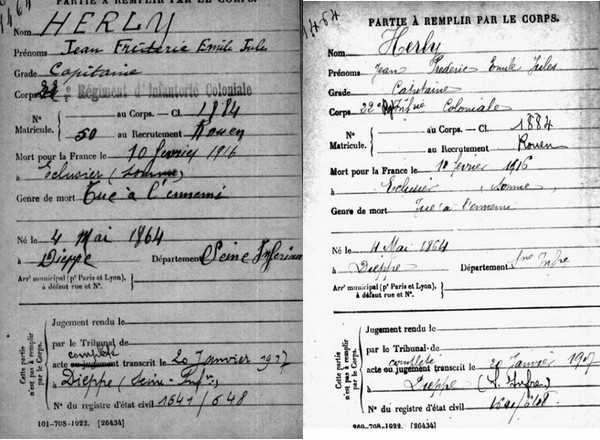 PARTIE À REMPLIR PAR LE CORPS.
1464
Nom HERLY
Prénoms Jean Frédéric Emile Jules
Grade Capitaine
Corps 22e Régiment d'Infanterie Coloniale
N° Matricule. au Corps. — Cl. 1884
50 au Recrutement Rouen
Mort pour la France le 10 fevrier 1916
à Eclusier (Somme)
Genre de mort Tué à l'ennemi
Né le 4 Mai 1864
à Dieppe Département Seine Inferieure
Arrt municipal (pr Paris et Lyon), à défaut rue et N°.
Cette partie n'est pas à remplir par le Corps.
Jugement rendu le
par le Tribunal de
complété
acte ou jugement transcrit le 20 Janvier 1917
à Dieppe (Seine-Infre)
N° du registre d'état civil 1641/648
101-708-1922. [26434]
PARTIE À REMPLIR PAR LE CORPS.
1464
Nom Herly
Prénoms Jean Frederic Emile Jules
Grade Capitaine
Corps 22e Coloniale
N° Matricule. au Corps. — Cl. 1884
au Recrutement Rouen
Mort pour la France le 10 fevrier 1916
à Eclusier, Somme
Genre de mort Tué à l'ennemi
Né le 4 Mai 1864
à Dieppe Département Sne Infre
Arrt municipal (pr Paris et Lyon), à défaut rue et N°.
Cette partie n'est pas à remplir par le Corps.
Jugement rendu le
par le Tribunal de
complété
acte ou jugement transcrit le 20 Janvier 1917
à Dieppe (S. Infre)
N° du registre d'état civil
[26434]